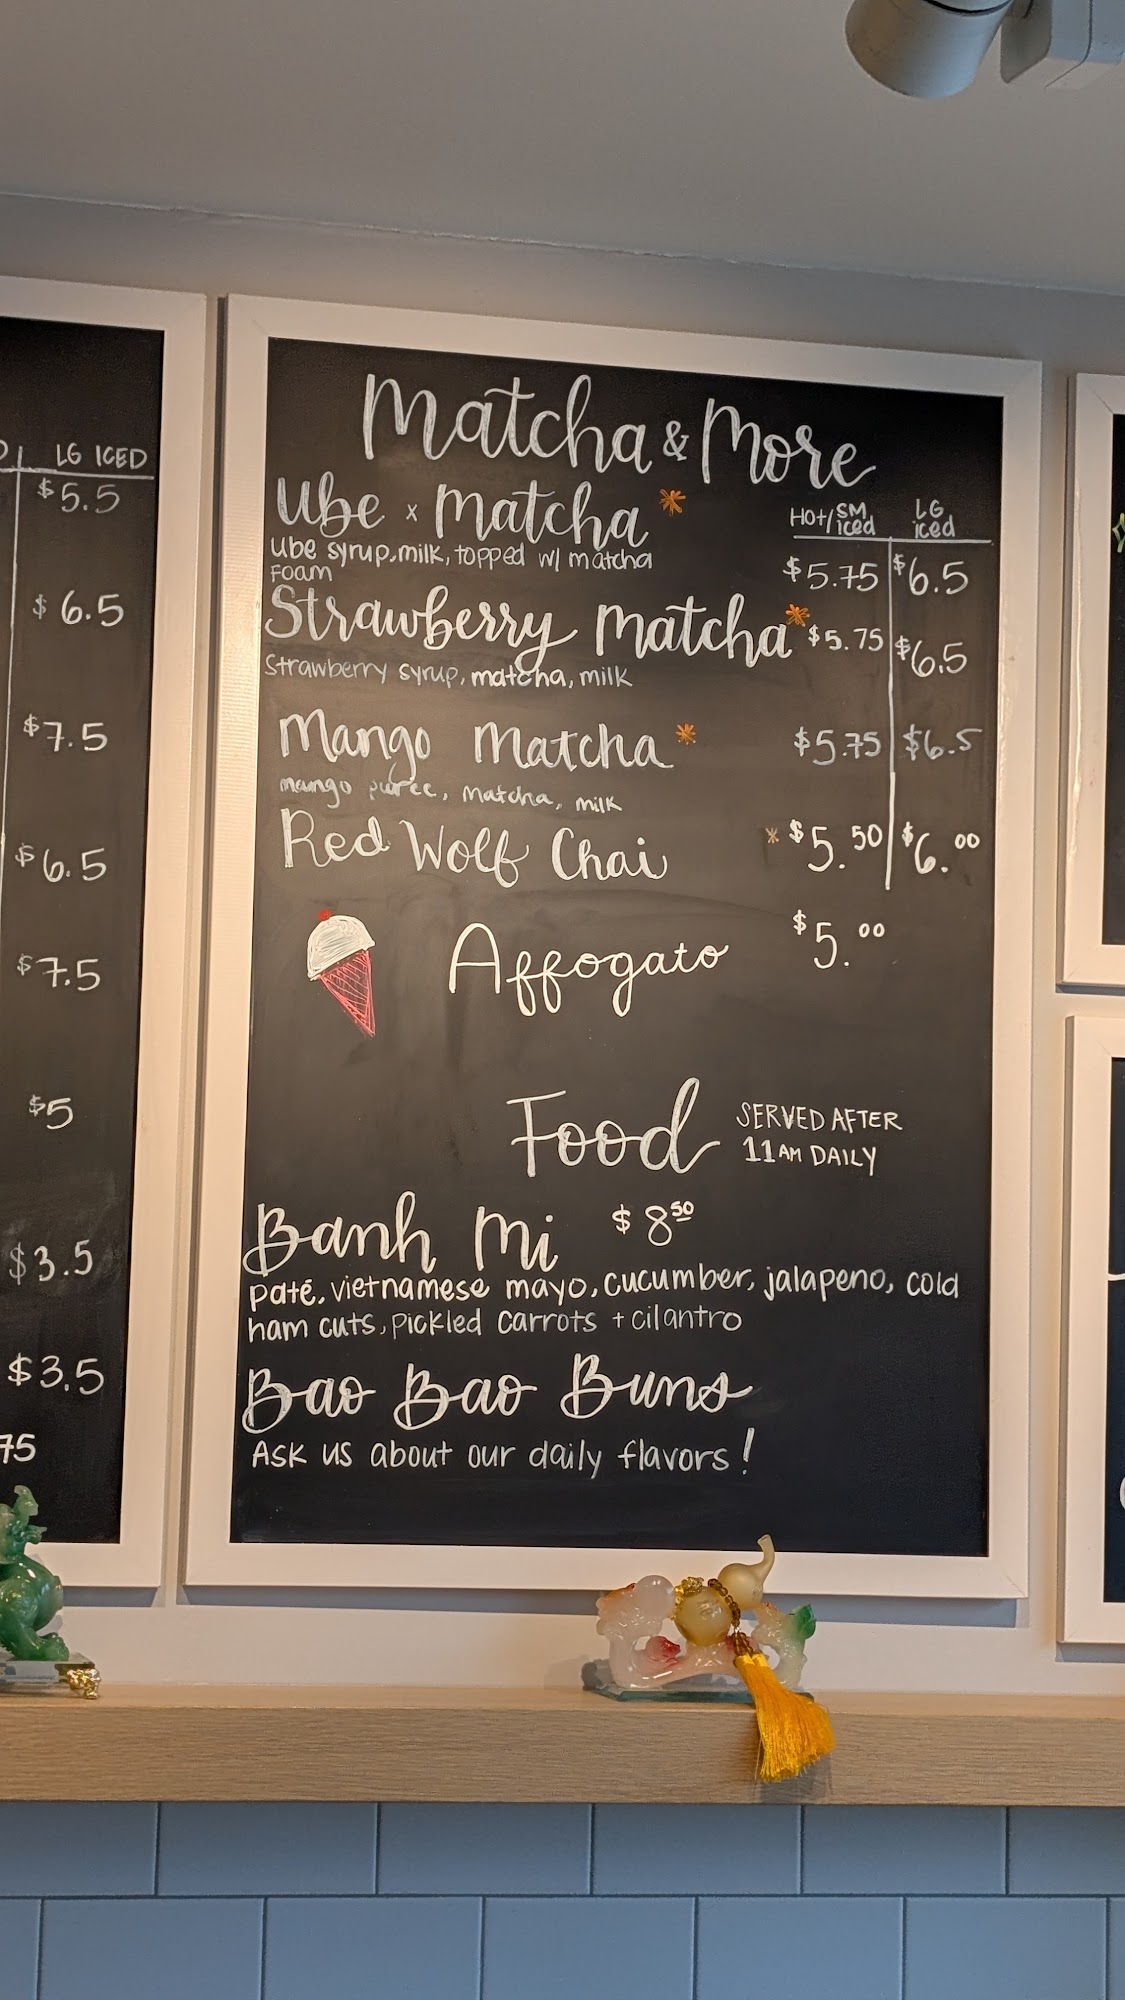 LG ICED
$5.5
$6.5
$7.5
$6.5
$7.5
$5
$3.5
$3.5
75
Matcha & More
HOT/SM iced | LG iced
Ube x Matcha * $5.75 $6.5
Ube syrup, milk, topped w/ matcha
Foam
Strawberry Matcha* $5.75 $6.5
Strawberry syrup, matcha, milk
Mango Matcha* $5.75 $6.5
mango puree, matcha, milk
Red Wolf Chai * $5.50 $6.00
Affogato $5.00
Food SERVED AFTER
11AM DAILY
Banh Mi $8.50
paté, vietnamese mayo, cucumber, jalapeno, cold
ham cuts, pickled carrots + cilantro
Bao Bao Buns
Ask us about our daily flavors!